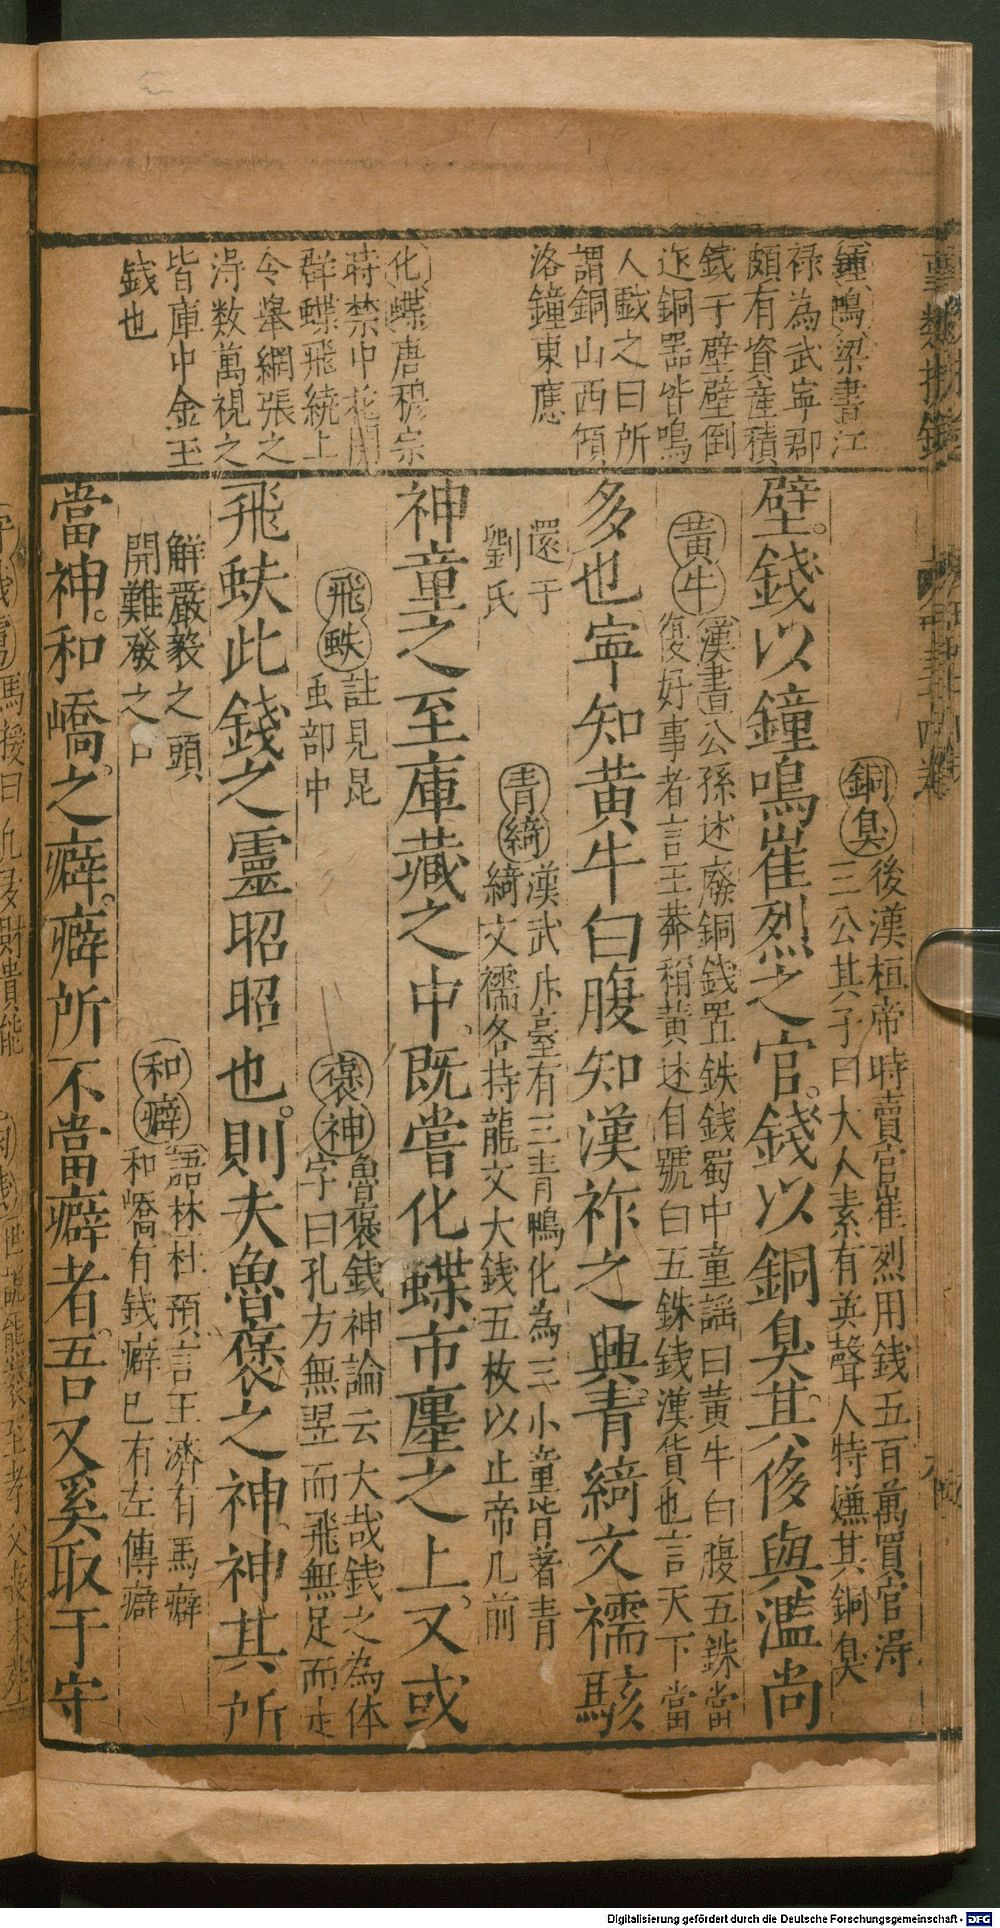 鍾鳴梁書江
禄為武寧郡
頗有資産積
錢于壁壁倒
迮銅器皆鳴
人戯之曰所
謂銅山西傾
洛鐘東應
化蝶唐穆宗
時禁中花開
群蝶飛繞上
令舉網張之
淂数萬視之
皆庫中金玉
錢也
銅臭後漢桓帝時賣官崔烈用錢五百萬買官淂
三公其子曰大人素有英聲人特嫌其銅臭
壁錢以鐘鳴崔烈之官錢以銅臭其侈與濫尚
黃牛漢書公孫述廢銅錢置鉄錢蜀中童謡曰黃牛白腹五銖當
復好事者言王莽稱黃述自號白五銖錢漢貨也言天下當
多也寧知黃牛白腹知漢祚之興青綺文襦駭
還于
劉氏
青綺漢武 臺有三青鴨化為三小童皆著青
綺文襦各持龍文大錢五枚以止帝几前
神童之至庫藏之中既嘗化蝶市廛之上又或
飛蚨註見昆
虫部中
褒神魯褒錢神論云大哉錢之為体
字曰孔方無翌而飛無足而走
飛蚨此錢之靈昭昭也則夫魯褒之神神其所
解嚴毅之頭
開難發之口
和癖語林杜預言王濟有馬癖
和嶠有錢癖已有左傳癖
當神和嶠之癖癖所不當癖者吾又奚取于守
Digitalisierung gefördert durch die Deutsche Forschungsgemeinschaft - DFG